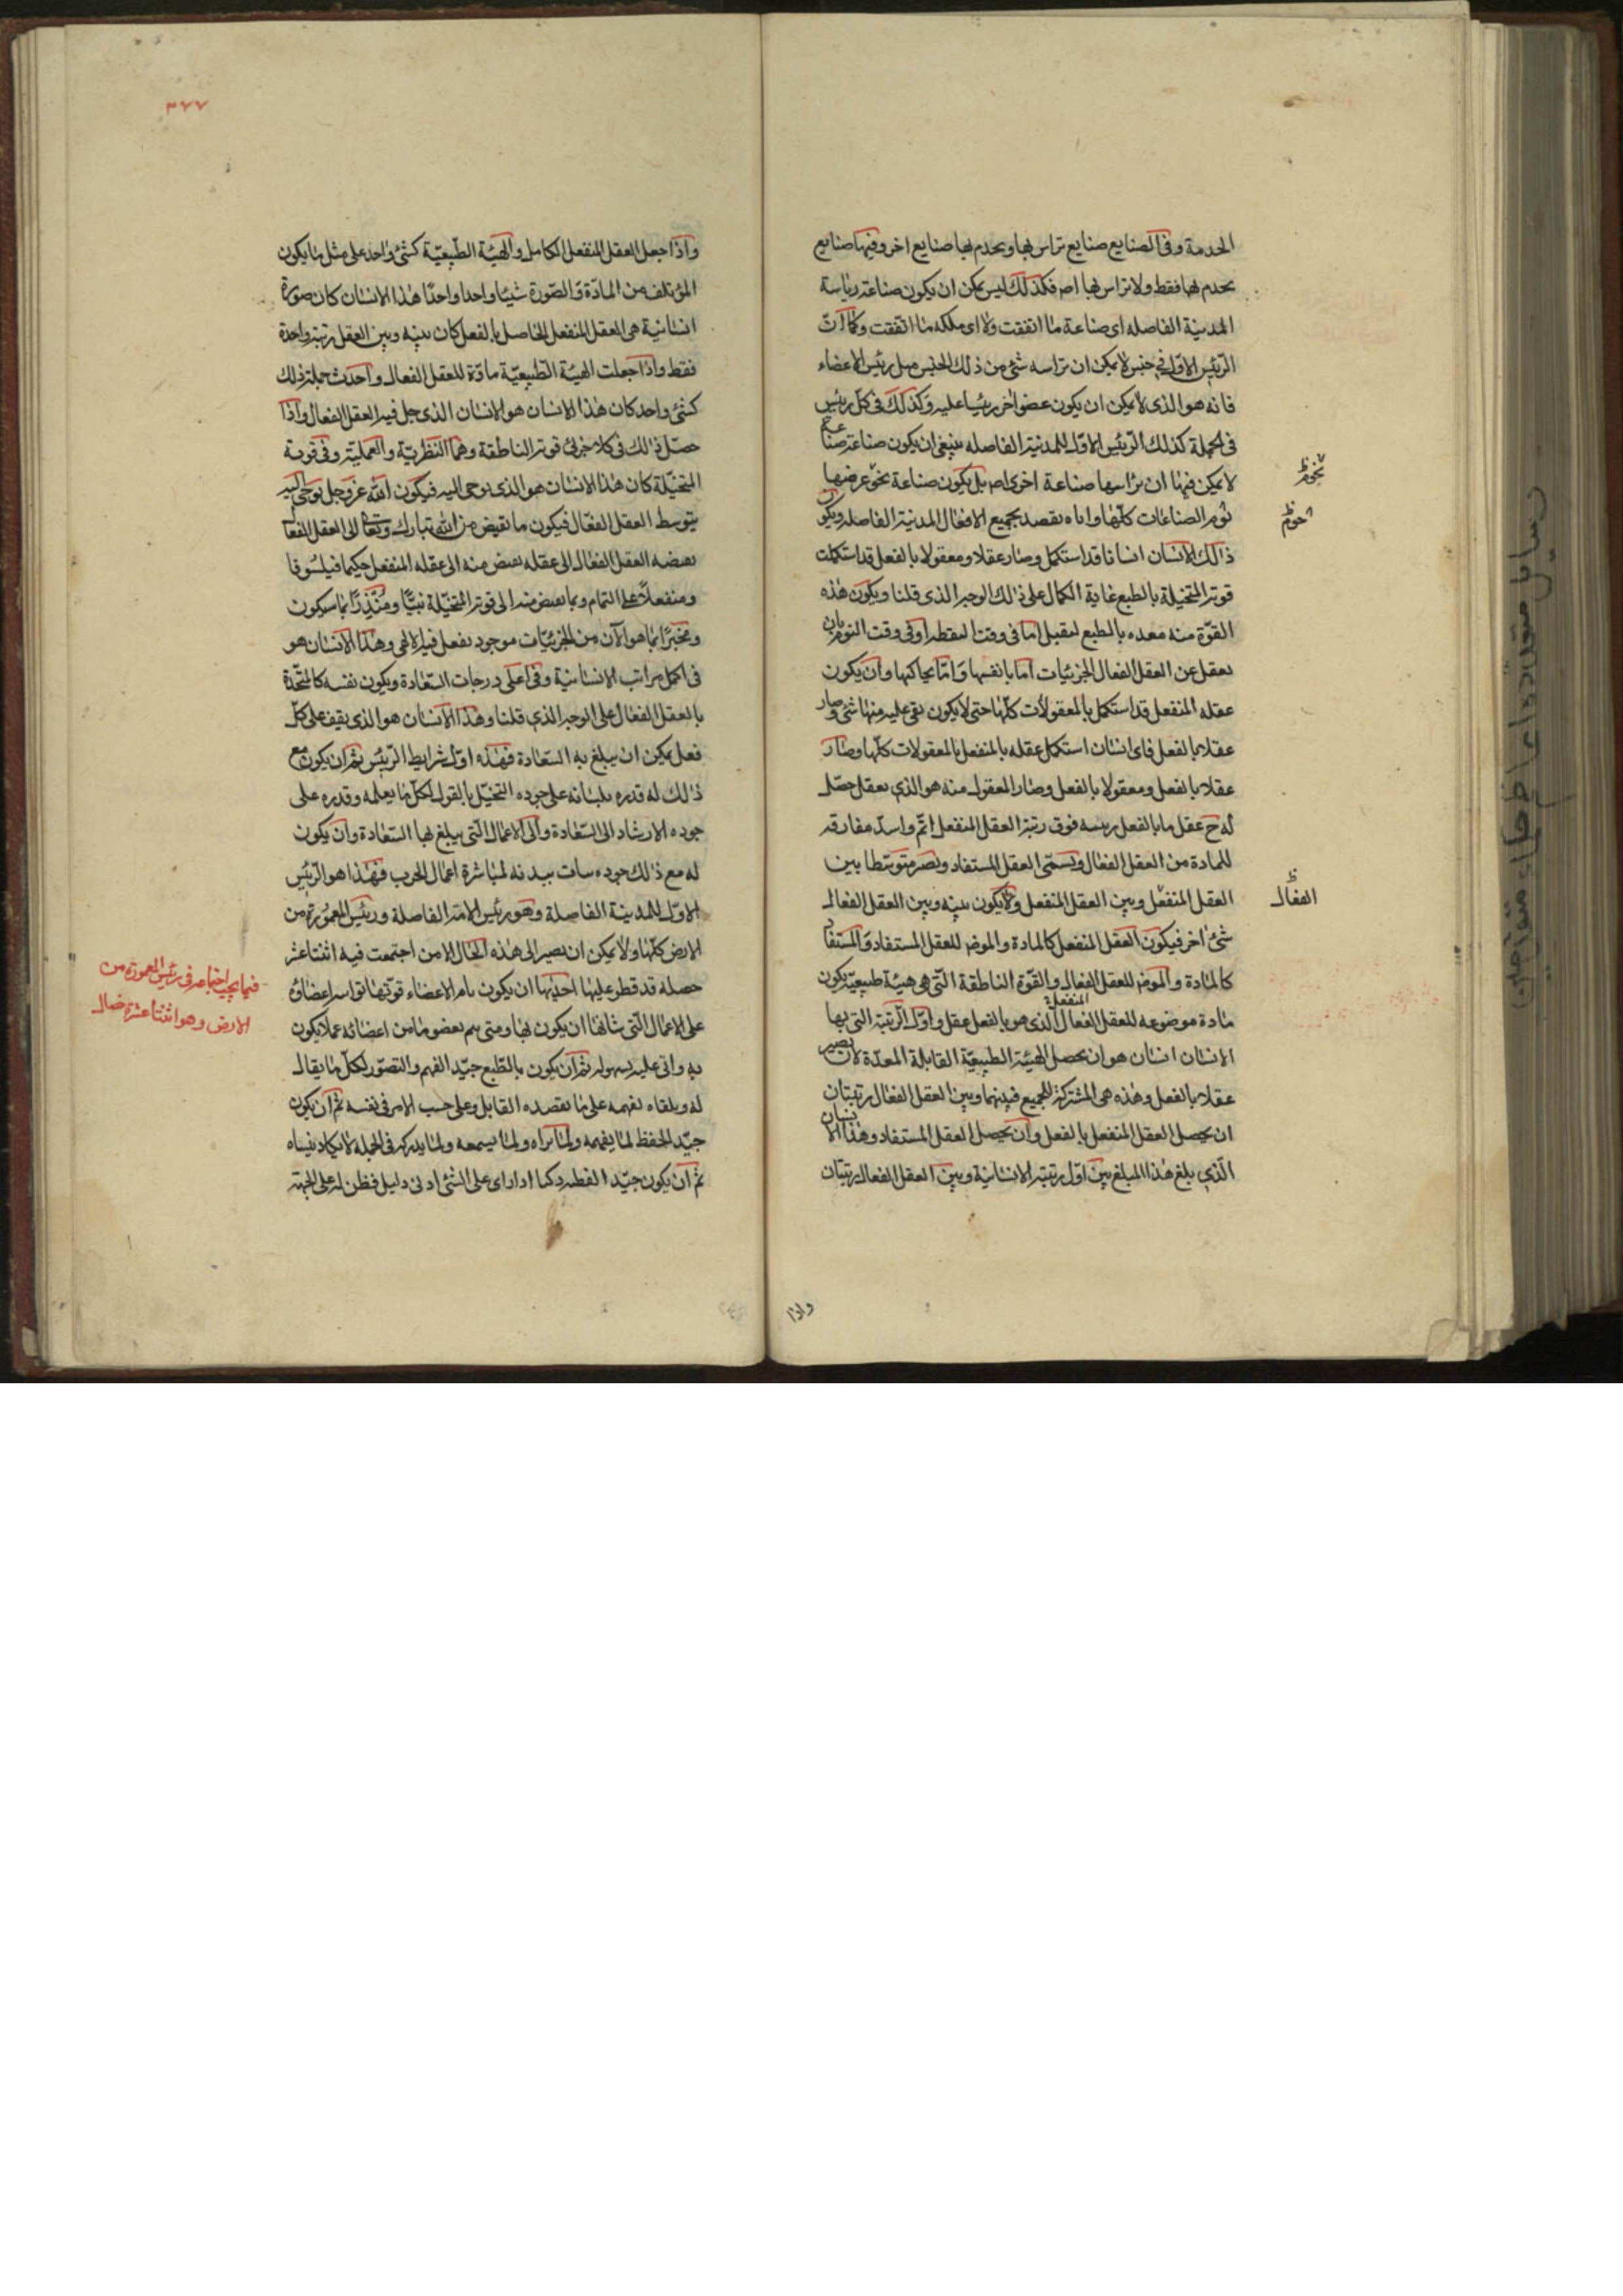 الخدمة وفى الصنايع صنايع تراس بها ويخدم بها صنايع اخر وفيها صنايع
يخدم بها فقط ولا تراس بها اصلا فكذلك ليس يمكن ان يكون صناعة رياسة
المدينة الفاصله اى صناعة ما اتفقت ولا اى ملكه ما اتفقت وكما ان
الرئيس الاول فى جنس لا يمكن ان تراسه شئ من ذلك الجنس مثل رئيس الاعضاء
فانه هو الذى لا يمكن ان يكون عضو اخر رئيسا عليه وكذلك فى كل رئيس
فى الجملة كذلك الرئيس الاول للمدينة الفاصله ينبغى ان يكون صناعته صناعة
لا يمكن فيها ان تراسها صناعة اخرى اصلا بل يكون صناعة نحو غرضها
تؤم الصناعات كلها واياه يقصد بجميع الافعال المدينة الفاصله ويكون
ذلك الانسان انسانا قد استكمل وصار عقلا ومعقولا بالفعل قد استكملت
قوته المتخيلة بالطبع غاية الكمال على ذلك الوجه الذى قلنا ويكون هذه
القوة منه معده بالطبع لتقبل اما فى وقت اليقظه او فى وقت النوم بان
يعقل عن العقل الفعال الجزئيات اما بانفسها واما بما يحاكيها وان يكون
عقله المنفعل قد استكمل بالمعقولات كلها حتى لا يكون بقى عليه منها شئ وصار
عقلا بالفعل فاى انسان استكمل عقله بالمنفعل بالمعقولات كلها وصار
عقلا بالفعل ومعقولا بالفعل وصار المعقول منه هو الذى يعقل حصل
له ح عقل ما بالفعل رتبته فوق رتبة العقل المنفعل اتم واسد مفارقه
للمادة من العقل الفعال ويسمى العقل المستفاد ويصير متوسطا بين
العقل المنفعل وبين العقل المنفعل ولا يكون بينه وبين العقل الفعال
شئ اخر فيكون العقل المنفعل كالمادة والموضوع للعقل المستفاد والمستفاد
كالمادة والموضوع للعقل الفعال والقوة الناطقة التى هى هيئة طبيعية يكون
مادة موضوعه للعقل الفعال المنفعل الذى هو بالفعل عقل واول الرتبة التى بها
الانسان انسان هو ان يحصل الهيئة الطبيعية القابلة المعدة لان يصير
عقلا بالفعل وهذه هى المشتركة للجميع فبينها وبين العقل الفعال رتبتان
ان يحصل العقل المنفعل بالفعل وان يحصل العقل المستفاد وهذا الانسان
الذى بلغ هذا المبلغ بين اول رتبة الانسانية وبين العقل الفعال رتبتان
واذا
الفعال
٣٧٧
واذا جعل العقل المنفعل الكامل والهيئة الطبيعية كشئ واحد على مثل ما يكون
المؤتلف من المادة والصورة شيئا واحدا واحدا هذا الانسان كان صورة
انسانية هى العقل المنفعل الحاصل بالفعل كان بينه وبين العقل رتبة واحدة
فقط واذا جعلت الهيئة الطبيعية مادة للعقل الفعال واحدث جملة ذلك
كشئ واحد كان هذا الانسان هو الانسان الذى حل فيه العقل الفعال واذا
حصل ذلك فى كلا جزئى قوته الناطقة وهما النظرية والعملية وفى قوته
المتخيلة كان هذا الانسان هو الذى يوحى اليه فيكون الله عز وجل يوحى اليه
بتوسط العقل الفعال فيكون ما يفيض من الله تبارك وتعالى الى العقل الفعال
يفيضه العقل الفعال الى عقله يفيض منه الى عقله المنفعل حكيما فيلسوفا
ومنفعلا على التمام وبما يفيض منه الى قوته المتخيلة نبيا ومنذرا بما سيكون
ومخبرا بما هو الآن من الجزئيات موجود يفعل فيه الالهى وهذا الانسان هو
فى اكمل مراتب الانسانية وفى اعلى درجات السعادة ويكون نفسه كالمتحدة
بالعقل الفعال على الوجه الذى قلنا وهذا الانسان هو الذى يقف على كل
فعل يمكن ان يبلغ به السعادة فهذه اول شرايط الرئيس ثم ان يكون مع
ذلك له قدره بلسانه على جوده التخيل بالقول لكل ما يعلمه وقدره على
جوده الارشاد الى السعادة والى الاعمال التى يبلغ بها السعادة وان يكون
له مع ذلك جوده سات ببدنه لمباشرة اعمال الحرب فهذا هو الرئيس
الاول للمدينة الفاصلة وهو رئيس الامة الفاصلة ورئيس المعمورة من
الارض كلها ولا يمكن ان يصير الى هذه الحال الا من اجتمعت فيه اثنتا عشر
حصله قد فطر عليها احديها ان يكون تام الاعضاء قوتها اتوا سر اعضاؤه
على الاعمال التى شانها ان يكون بها ومتى هم بعضو ما من اعضائه عملا يكون
به واتى عليه بسهوله ثم ان يكون بالطبع جيد الفهم والتصور لكل ما يقال
له ويلقاه بفهمه على ما يقصده القايل وعلى حسب الامر فى نفسه ثم ان يكون
جيد الحفظ لما يفهمه ولما يراه ولما يسمعه ولما يدركه فى الجمله لا يكاد ينساه
ثم ان يكون جيد الفطنه ذكيا اذا راى على الشئ ادنى دليل فظن له على الجهة
فيما يجب اجتماعه فى رئيس المعمورة من
الارض وهو اثنتا عشرة خصال